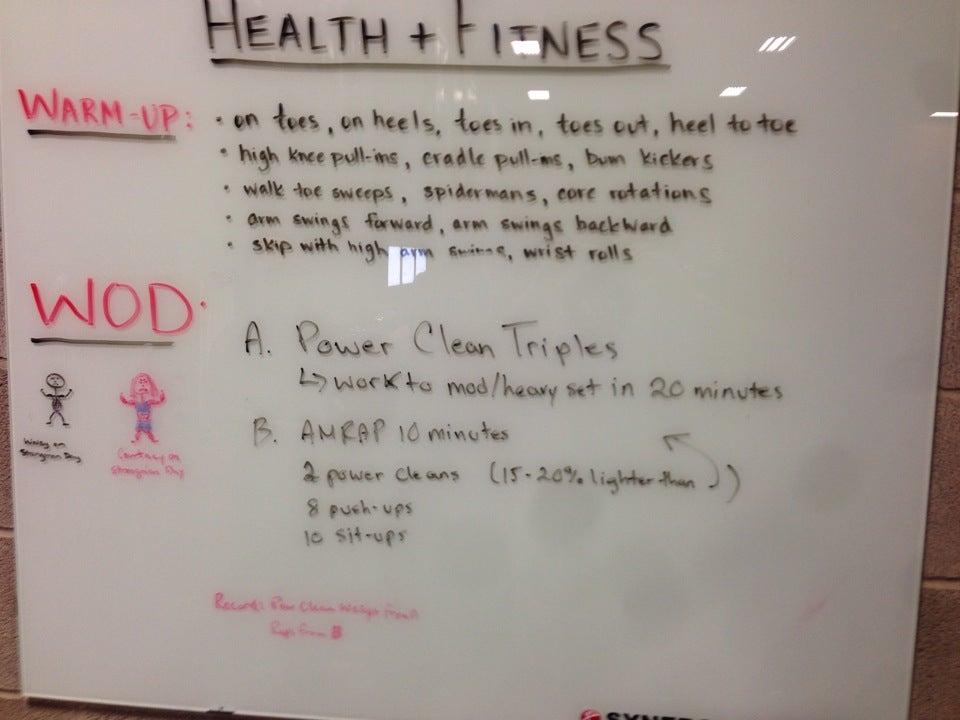 HEALTH + FITNESS
WARM-UP:
• on toes, on heels, toes in, toes out, heel to toe
• high knee pull-ins, cradle pull-ins, bum kickers
• walk toe sweeps, spidermans, core rotations
• arm swings forward, arm swings backward
• skip with high arm swings, wrist rolls
WOD:
A. Power Clean Triples
↳ work to mod/heavy set in 20 minutes
B. AMRAP 10 minutes
2 power cleans (15-20% lighter than )
8 push-ups
10 sit-ups
on
Strongman Day
on
Strongman Day
Record: Pow Clean Weight from A
Reps from B